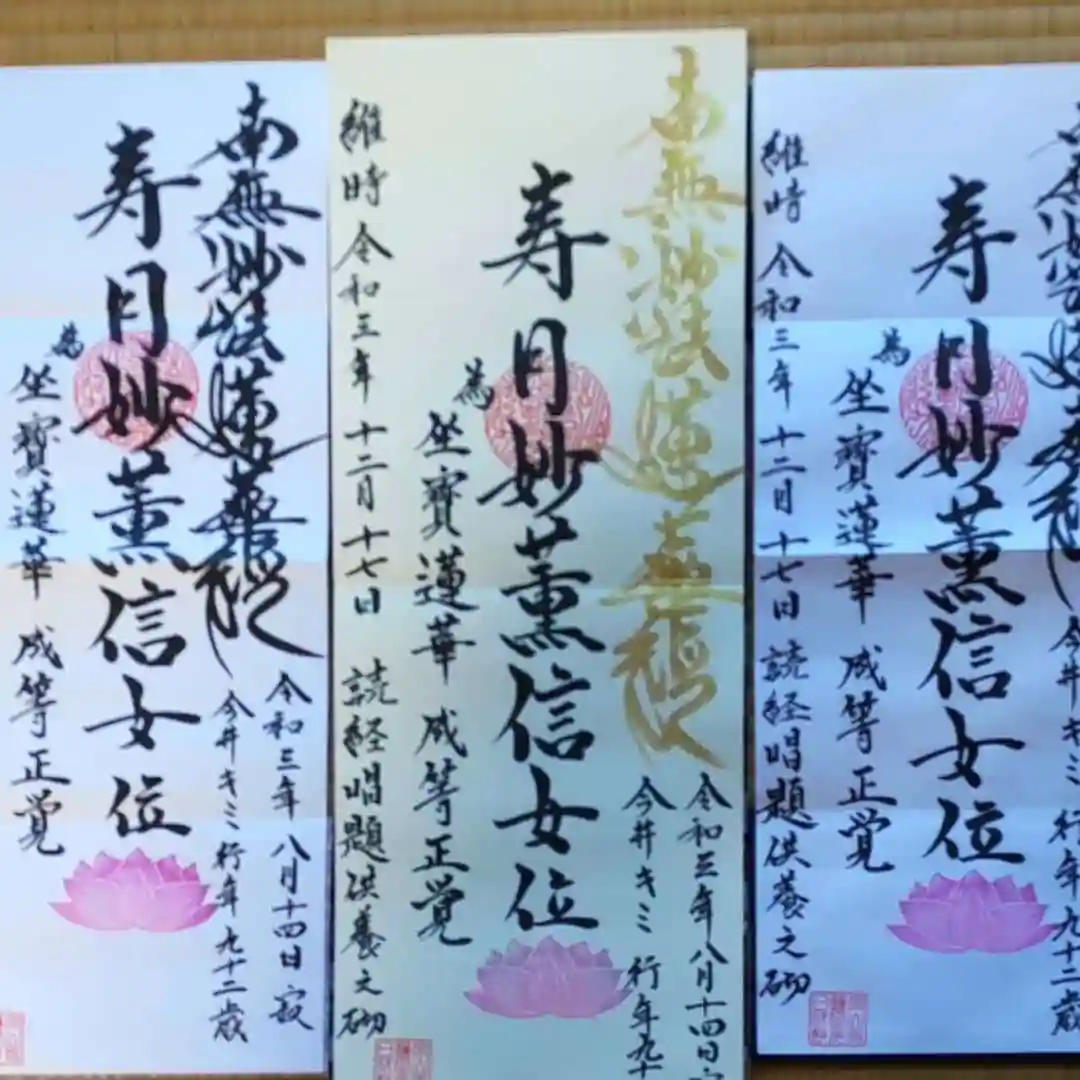 南無妙法蓮華経
今井キミ 行年九十二歳
寿月妙薫信女位
為 坐寳蓮華 成等正覚
維時 令和三年 十二月十七日 読経唱題供養之砌
南無妙法蓮華経
令和三年八月十四日
今井キミ 行年九十
寿月妙薫信女位
為 坐寳蓮華 成等正覚
維時 令和三年 十二月十七日 読経唱題供養之砌
南無妙法蓮華経
令和三年 八月十四日 寂
今井キミ 行年九十二歳
寿月妙薫信女位
為 坐寳蓮華 成等正覚